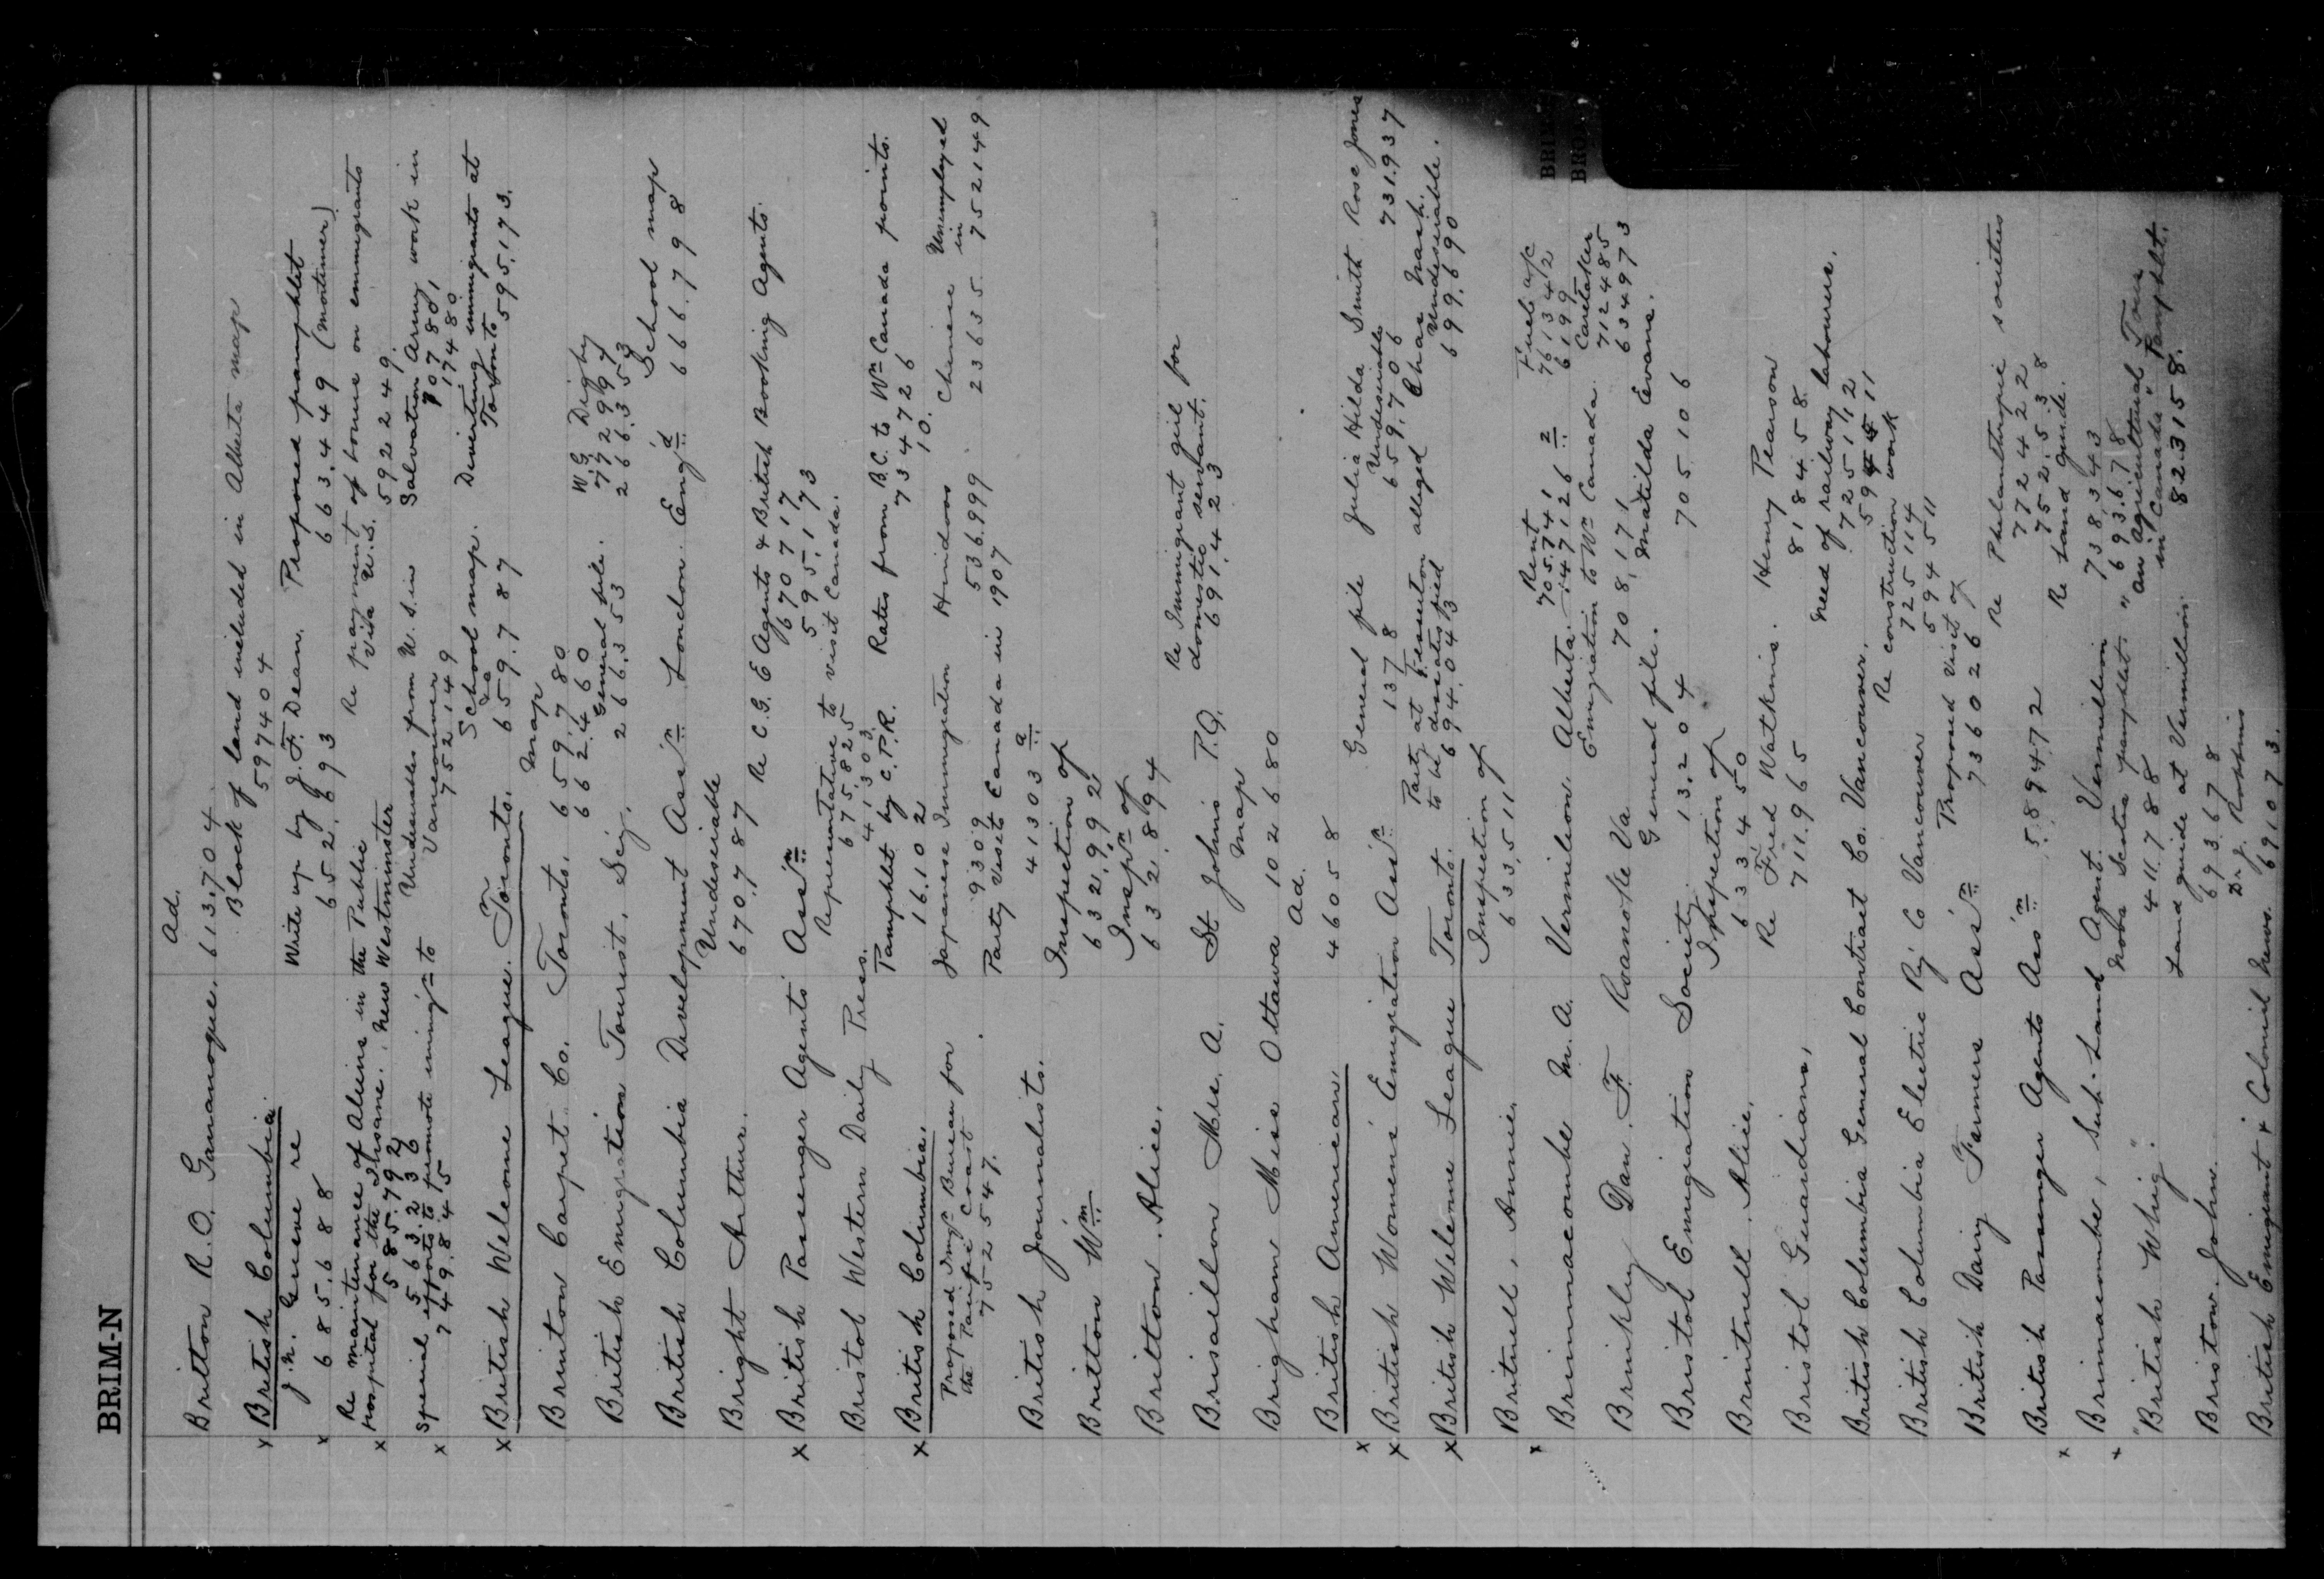 BRIM-N
Ad.
Britton R.O. Gananoque. 613,704
Block of land included in Alberta map
597404
x British Columbia
J.N. Greene re Write up by J.F. Dean. Proposed pamphlet
x 685,688 652,693 663,449 (Mortimer)
Re maintenance of Aliens in the Public Re payment of bonus on emmigrants
x Hospital for the Insane, New Westminster via U.S.
585,792 592249
563,236 Undesirables from U.S. in Salvation Army work in
x Special efforts to promote immigtn to Vancouver 707801
749,845 752149 17480
School map. Diverting immigrants at
x British Welcome League. Toronto. 659,787 Toronto 595,173.
Map
Brinton Carpet Co. Toronto. 659,780
662,460 W.G. Digby
General file. 772994
British Emigration Tourist, Sey. 266,353 266,353
School map
British Columbia Development Assn London Engd 666,798
Undesirable
Bright Arthur. 670,787
Re C.G.E Agents & British Booking Agents.
670717
x British Passenger Agents' Assn 595,173
Representative to visit Canada.
675,825
Bristol Western Daily Press. 41303
Pamphlet by C.P.R. Rates from B.C. to Wn Canada points.
x British Columbia. 16,102 734726
10.
Proposed Imgn Bureau for Japanese Immigration Hindoos Chinese Unemployed in
the Pacific Coast 9309 536,999 23635 752149
752547. Party visits Canada in 1907
41303 a
British Journalists.
Inspection of
Britton Wm 632,992
Inspn of
Britton, Alice. 632,894
Re Immigrant girl for
domestic servant.
Brisaillon Mrs. A. St Johns P.Q. 691,423
Map
Brigham Miss Ottawa 102680
Ad.
British American. 46058
x General file Julia Hilda Smith Rose Jones
x British Women's Emigration Assn 1378 Undesirable 731,937
659,706
Party at Fermenton alleged Chas Nash.
x British Welcome League Toronto. to be dissatisfied Undesirable.
694,043 699,690
Inspection of
Britnell, Annie. 633,511
x Rent Fuel a/c
705,741 761342
Brimmacombe M.A. Vermilion Alberta. 147126 2 6199
Emigration to Wn Canada. Caretaker
712485
Brinkley Dan. F. Roanoke Va 708,171 634973
General file. Matilda Evans.
Bristol Emigration Society. 13,204 705,106
Inspection of
Brintnell, Alice. 633450
Re Fred Watkins. Henry Pearson
Bristol Guardians, 711,965 818458
Need of railway labourers.
725112
British Columbia General Contract Co. Vancouver. 594511
Re construction work
725114
British Columbia Electric Ry Co Vancouver 594511
Proposed visit of
British Dairy Farmers Assn 736026
Re Philanthropic societies
772422
British Passenger Agents Assn 589472 752,538
x Re land guide.
Brimacombe, Sub-Land Agent. Vermillion 738,343
x Nova Scotia pamphlet. 693,678
"British Whig". 411,788 "An Agricultural Tour in Canada" Pamphlet.
Land guide at Vermillion 823158.
Bristow. John. 693,678
Dr J. Robbins
British Emigrant & Colonist News. 691073.
BRI
BRO